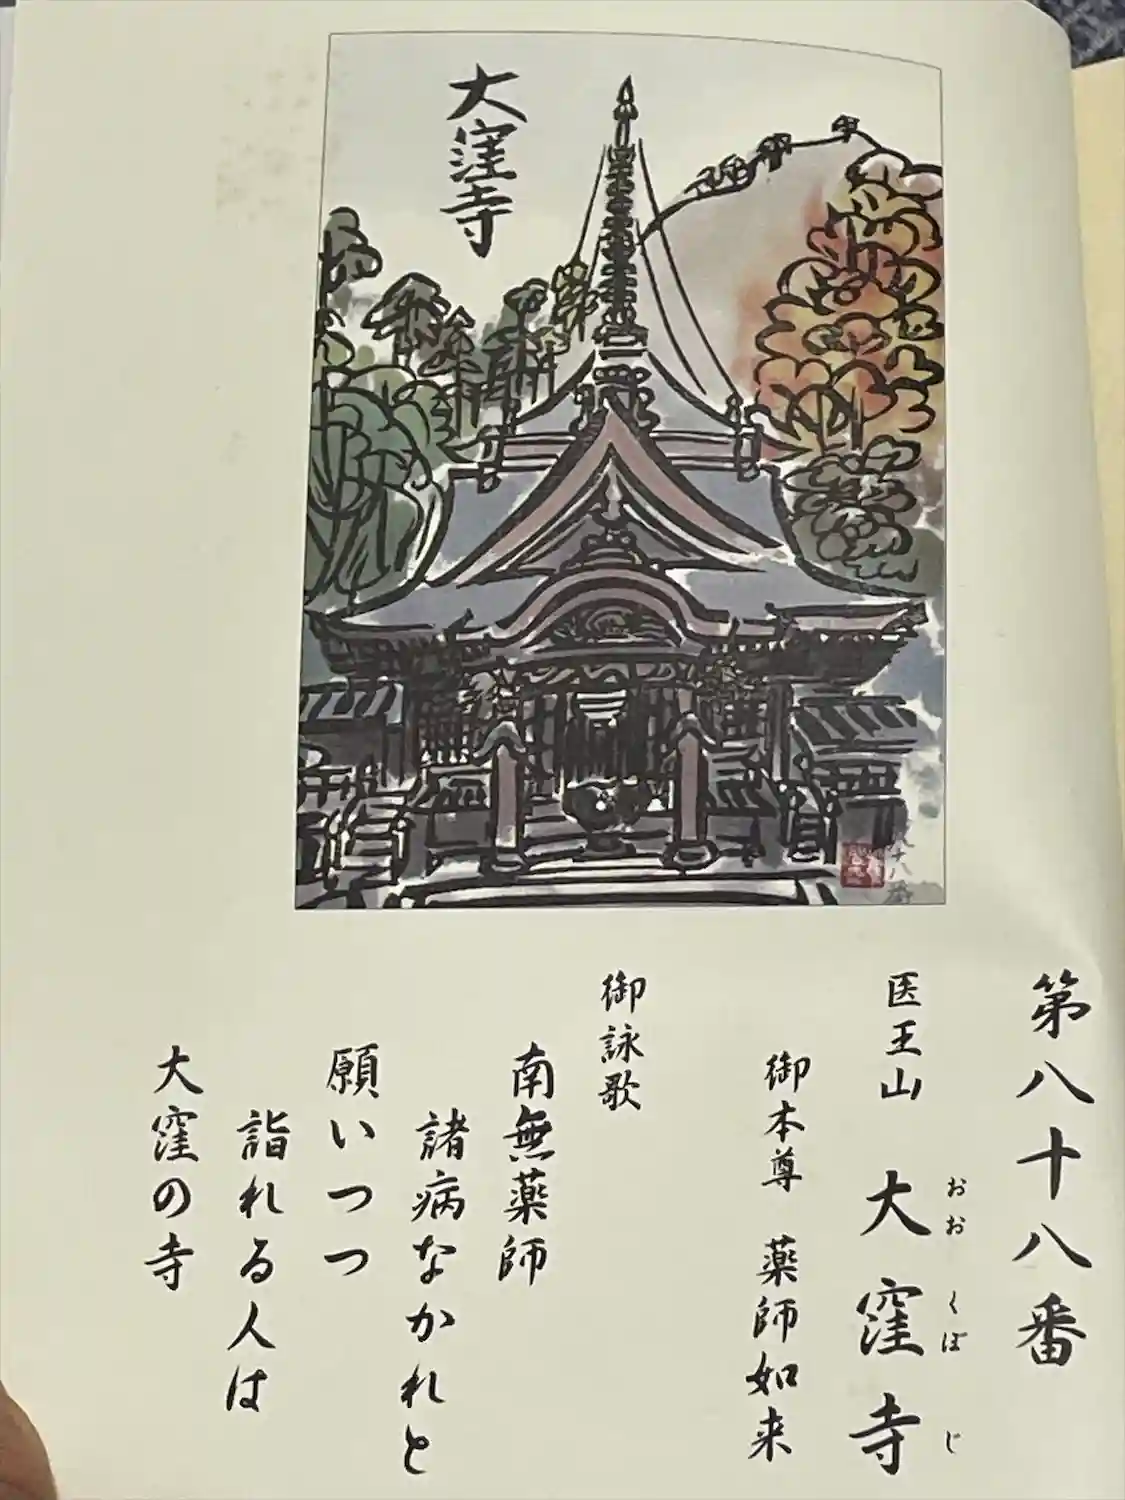 大窪寺
八十八番
第八十八番
医王山 大窪寺
おおくぼじ
御本尊 薬師如来
御詠歌
南無薬師
諸病なかれと
願いつつ
詣れる人は
大窪の寺